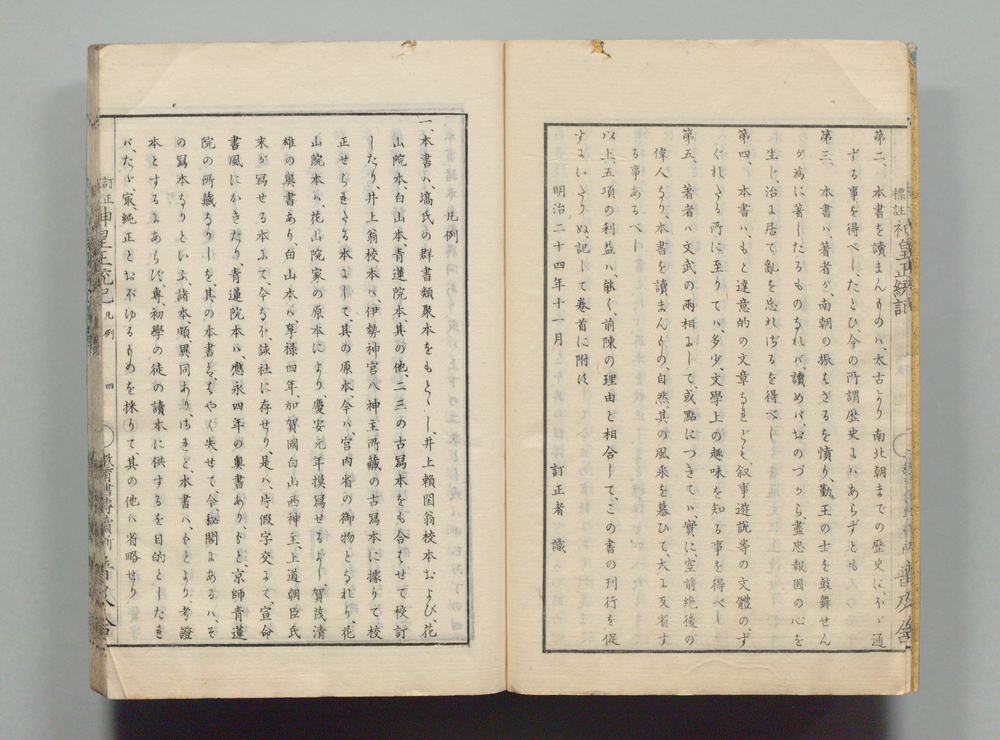 第二、本書を讀まんものハ、太古より南北朝までの歴史に、ほゞ通
ずる事を得べし、たとひ、今の所謂歴史にハあらずとも、
第三、本書ハ、著者が、南朝の振ハざるを憤り、勤王の士を鼓舞せん
が為に著したるものなれバ、讀めバ、おのづから、盡忠報國の心を
生じ、治に居て亂を忘れざるを得べし、
第四、本書ハ、もと達意的の文章なれども、叙事遊説等の文體の、ず
ぐれたる所に至りてハ、多少、文學上の趣味を知る事を得べし
第五、著者ハ、文武の兩相にして、或點につきてハ、實に、空前絶後の
偉人なり、本書を讀まんもの、自然、其の風采を慕ひて、大に反省す
る事あるべし
以上、五項の利益ハ、能く、前陳の理由と相合して、この書の刊行を促
すにいたりぬ、記して巻首に附す
明治二十四年十一月 訂正者 識
標註 神皇正統記
普及舍
凡例
一、本書ハ、塙氏の群書類聚本をもとゝし、井上賴圀翁校本および、花
山院本、白山本、青蓮院本、其の他、二三の古寫本をも合はせて校訂
したり、井上翁校本ハ、伊勢神宮八神主所藏の古寫本に據りて校
正せられたる本にして、其の原本、今ハ、宮内省の御物となれり、花
山院本ハ、花山院家の原本により、慶安元年摸寫せるよし、賀茂清
雄の奥書あり、白山本ハ、享祿四年、加賀國白山西神主、上道朝臣氏
来が寫せる本にて、今なほ、誠社に存せり、是ハ、片假字交にて、宣命
書風にかきたり、青蓮院本ハ、應永四年の奥書ありて、もと、京師青蓮
院の所藏なりしを、其の本書ハ、はやく失せて、今、秘閣にあるハ、そ
の寫本なりといふ、諸本、頗異同あり、されど、本書ハ、もとより、考證
本とするにあらず、專、初學の徒の讀本に供するを目的としたれ
バ、たゞ、最純正とおぼゆるものを採りて、其の他ハ省略せり
訂正 神皇正統記 凡例 四
教育書専賣所 普及舍